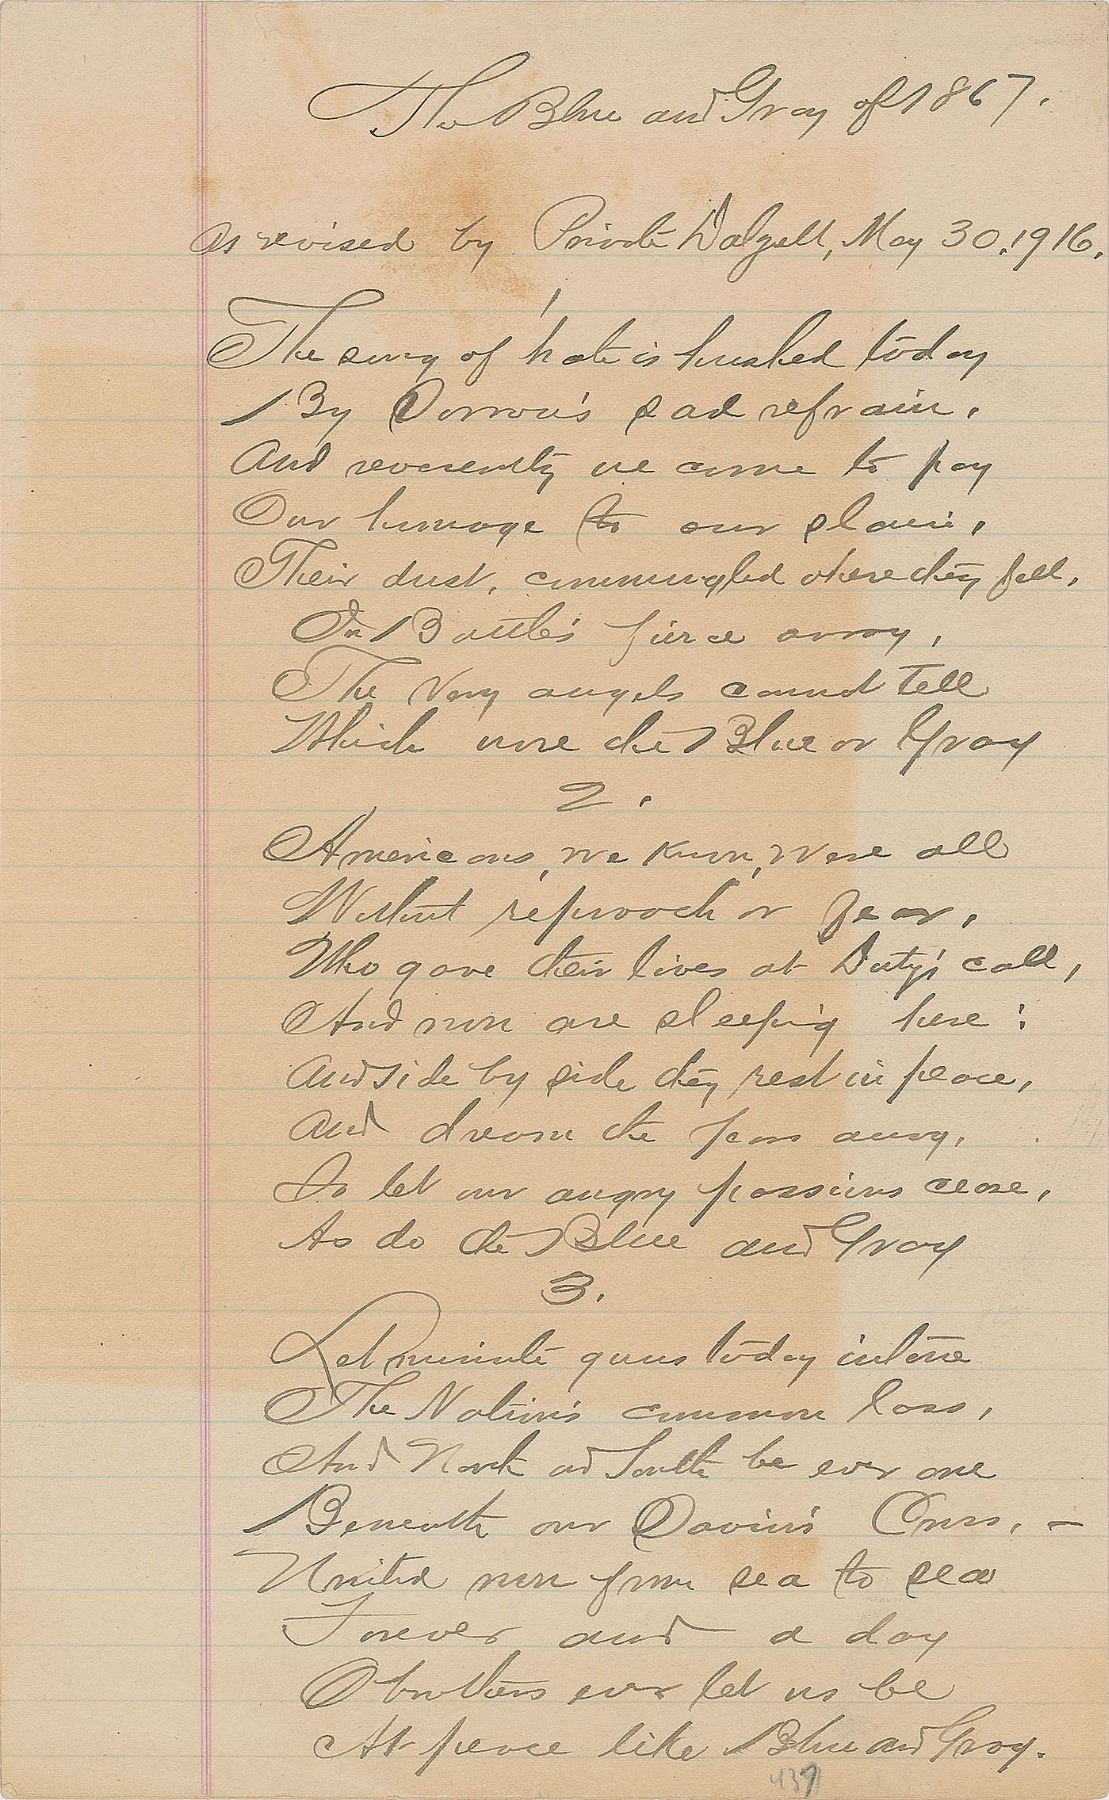 The Blue and Gray of 1867.
As revised by Private Dalzell, May 30, 1916.
1
The song of hate is hushed today
By Sorrow's sad refrain,
And reverently we come to pay
Our homage to our slain,
Their dust, commingled where they fell,
In Battle's fierce array,
The very angels cannot tell
Which wore the Blue or Gray
2.
Americans, we know, were all
Without reproach or fear,
Who gave their lives at Duty's call,
And now are sleeping here:
And side by side they rest in peace,
And dream the years away,
So let our angry passions cease,
As do the Blue and Gray
3.
Let minute guns today intone
The Nation's common loss,
And North and South be ever one
Beneath our Savior's Cross, –
United now from sea to sea
Forever and a day
O brothers ever let us be
At peace like Blue and Gray.
437